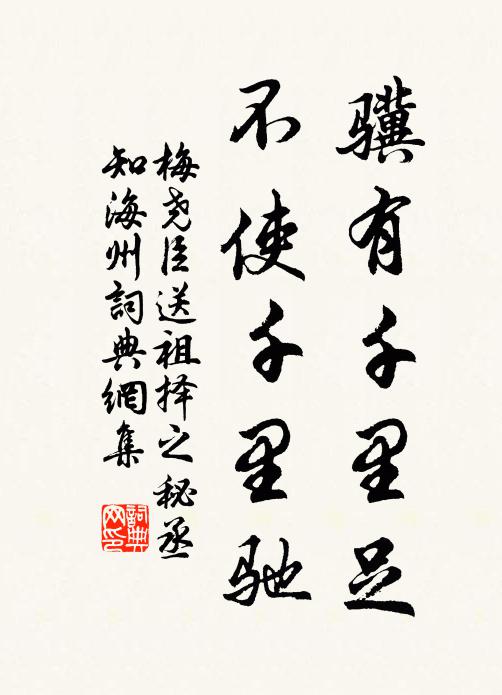 骥有千里足
不使千里驰
梅尧臣送祖择之秘丞
知海州詞典網集
詞典网印